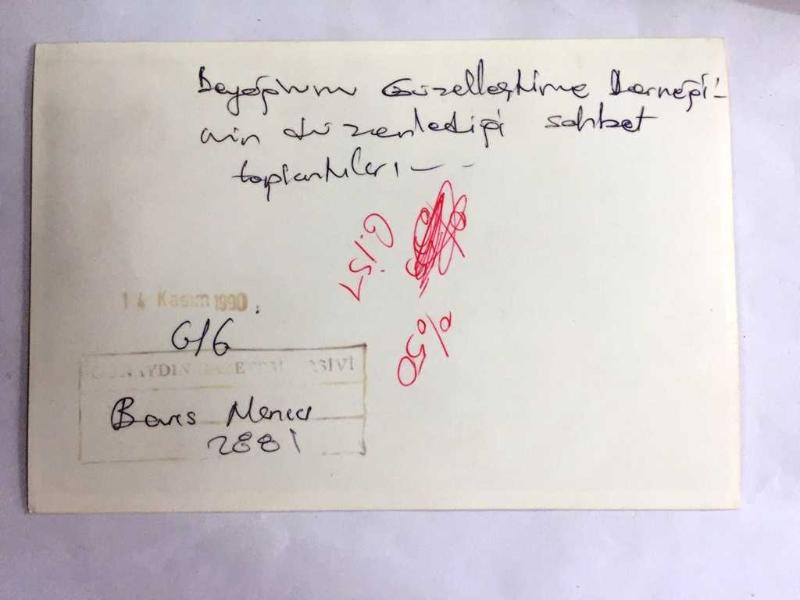 Beyoğlunu Güzelleştirme Derneği'-
nin düzenlediği sohbet
toplantıları - - -
%50
14 Kasım 1990
G/G
GÜNAYDIN GAZETESİ ARŞİVİ
Barıs Manço
2881